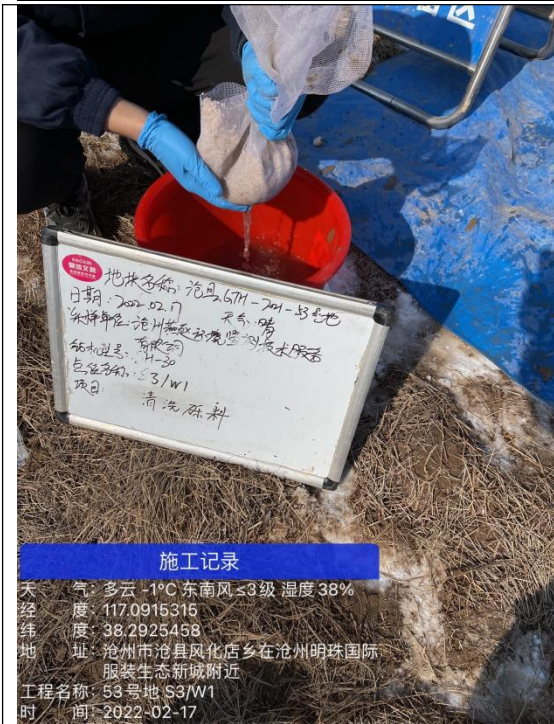 地块名称：沧县GTH-2021-53号地
日期：2022.02.17 天气：晴
采样单位：沧州 环境监测技术服务
有限公司
钻机型号：H-30
点位名称：S3/W1
项目：
清洗砾料
施工记录
天 气：多云 -1°C 东南风 ≤3级 湿度 38%
经 度：117.0915315
纬 度：38.2925458
地 址：沧州市沧县风化店乡在沧州明珠国际
服装生态新城附近
工程名称：53号地 S3/W1
时 间：2022-02-17